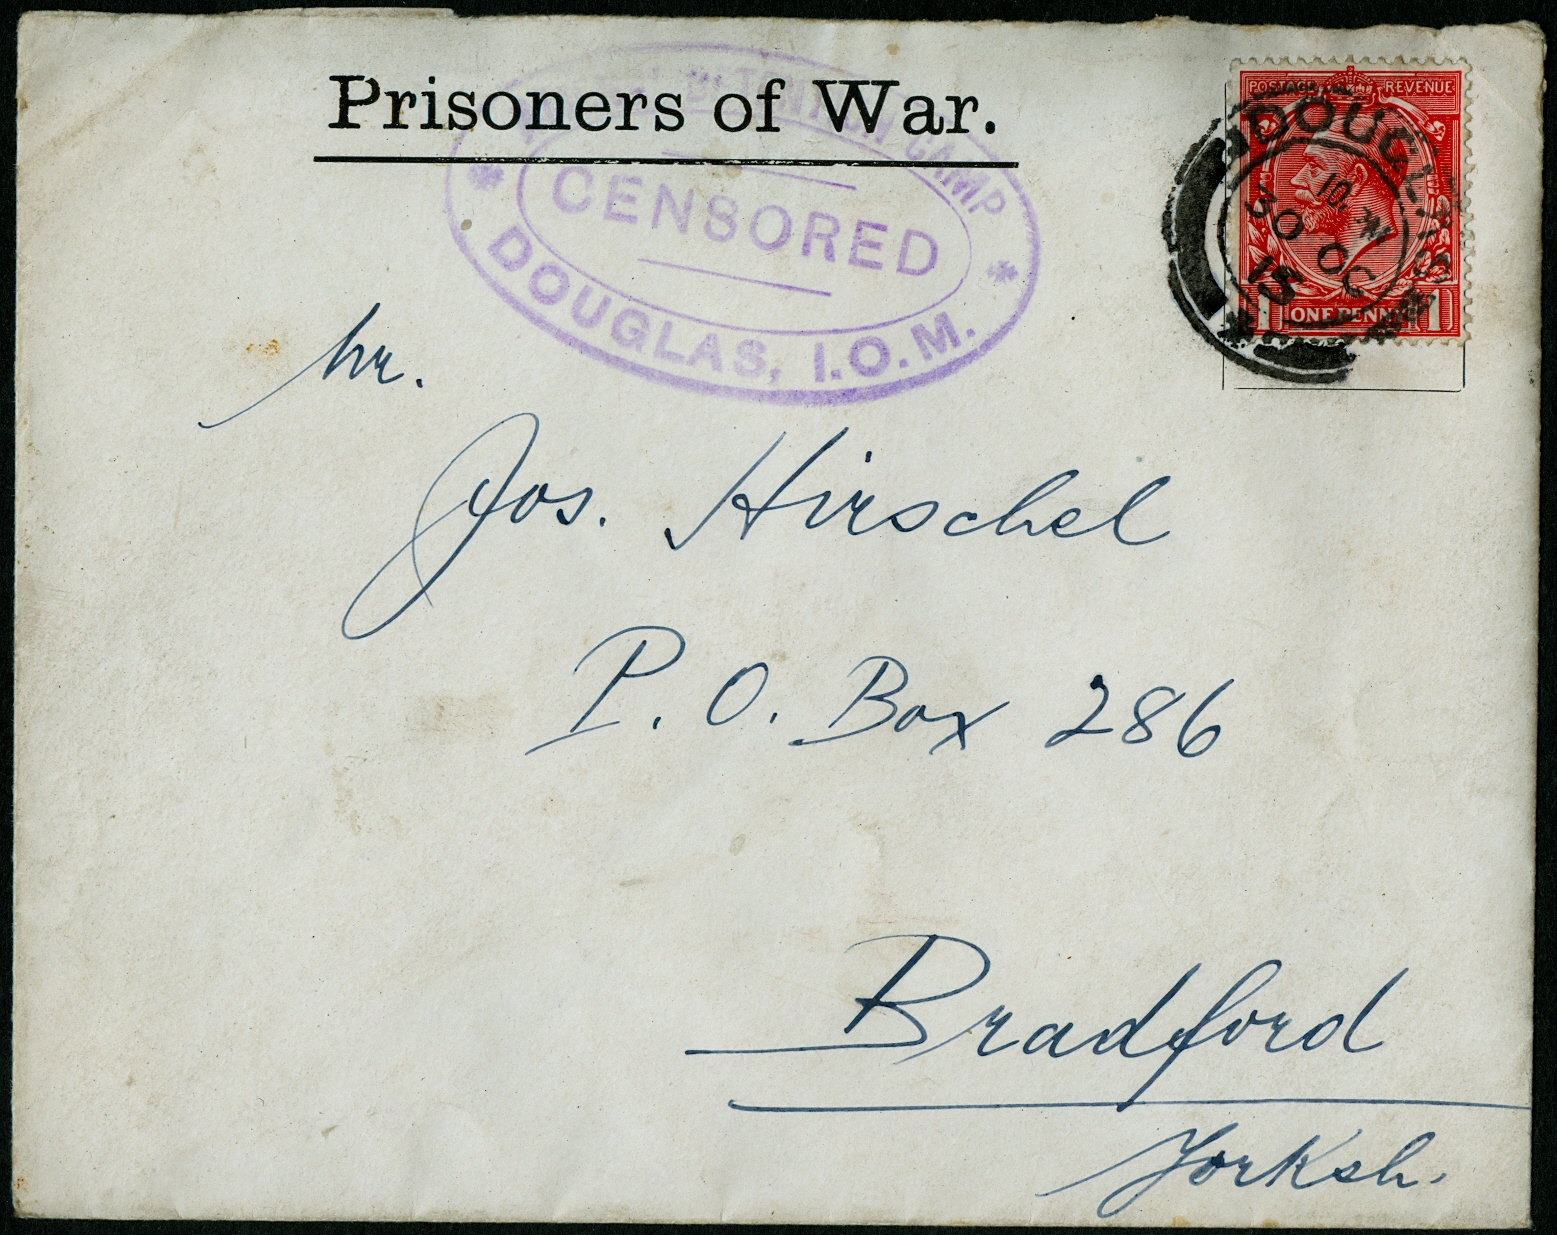 Prisoners of War.
DETENTION CAMP
CENSORED
DOUGLAS, I.O.M.
POSTAGE REVENUE
DOUGLAS
30 OC
15
1 ONE PENNY 1
Mr.
Jos. Hirschel
P. O. Box 286
Bradford
Yorksh.